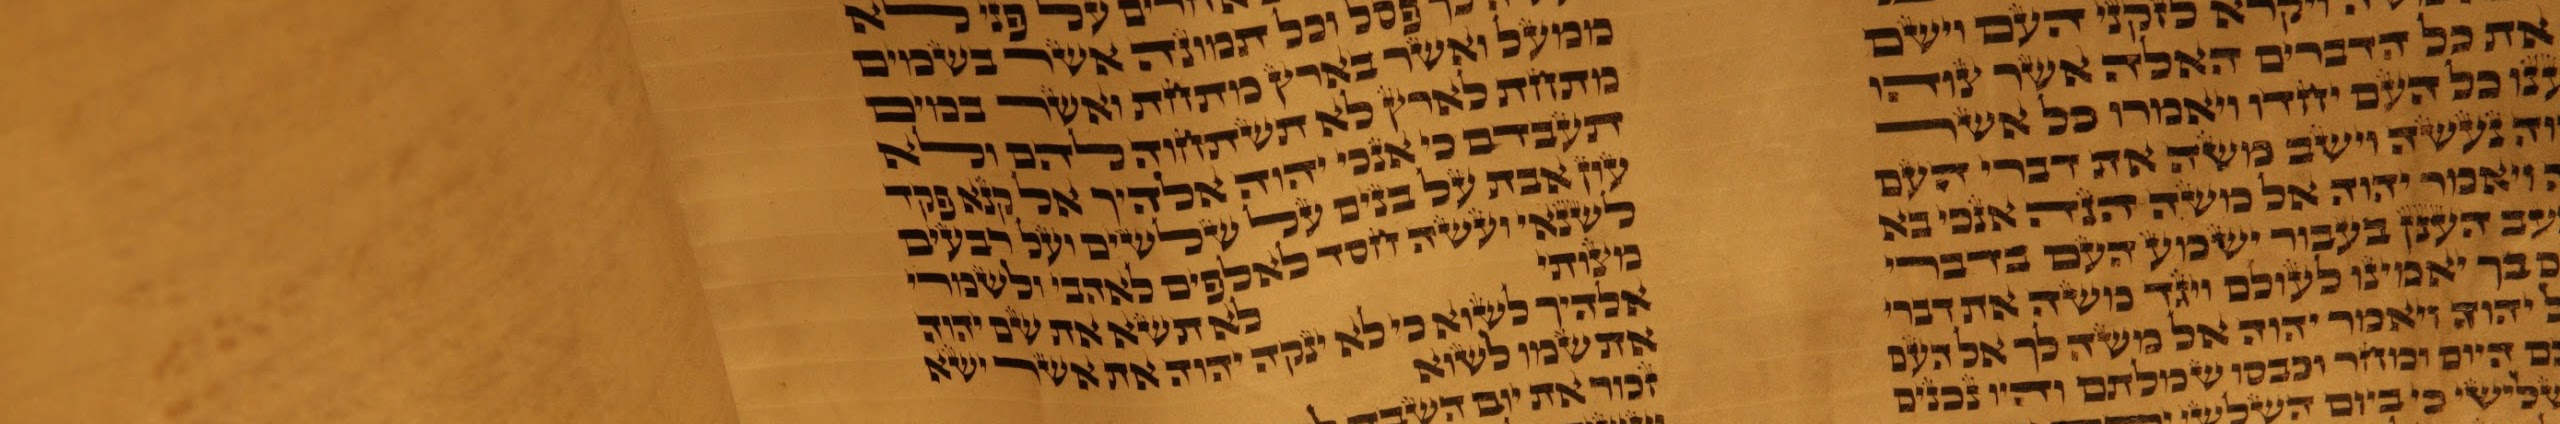 ויקרא לזקני העם וישם
את כל הדברים האלה אשר צוהו
כל העם יחדו ויאמרו כל אשר
נעשה וישב משה את דברי העם
ויאמר יהוה אל משה הנה אנכי בא
הענן בעבור ישמע העם בדברי
בך יאמינו לעולם ויגד משה את דברי
יהוה ויאמר יהוה אל משה לך אל העם
היום ומחר וכבסו שמלתם והיו נכנים
כי ביום השלשי
אחרים על פני לא
פסל וכל תמונה אשר בשמים
ממעל ואשר בארץ מתחת ואשר במים
מתחת לארץ לא תשתחוה להם ולא
תעבדם כי אנכי יהוה אלהיך אל קנא פקד
עון אבת על בנים על שלשים ועל רבעים
לשנאי ועשה חסד לאלפים לאהבי ולשמרי
מצותי לא תשא את שם יהוה
אלהיך לשוא כי לא ינקה יהוה את אשר ישא
את שמו לשוא
זכור את יום השבת